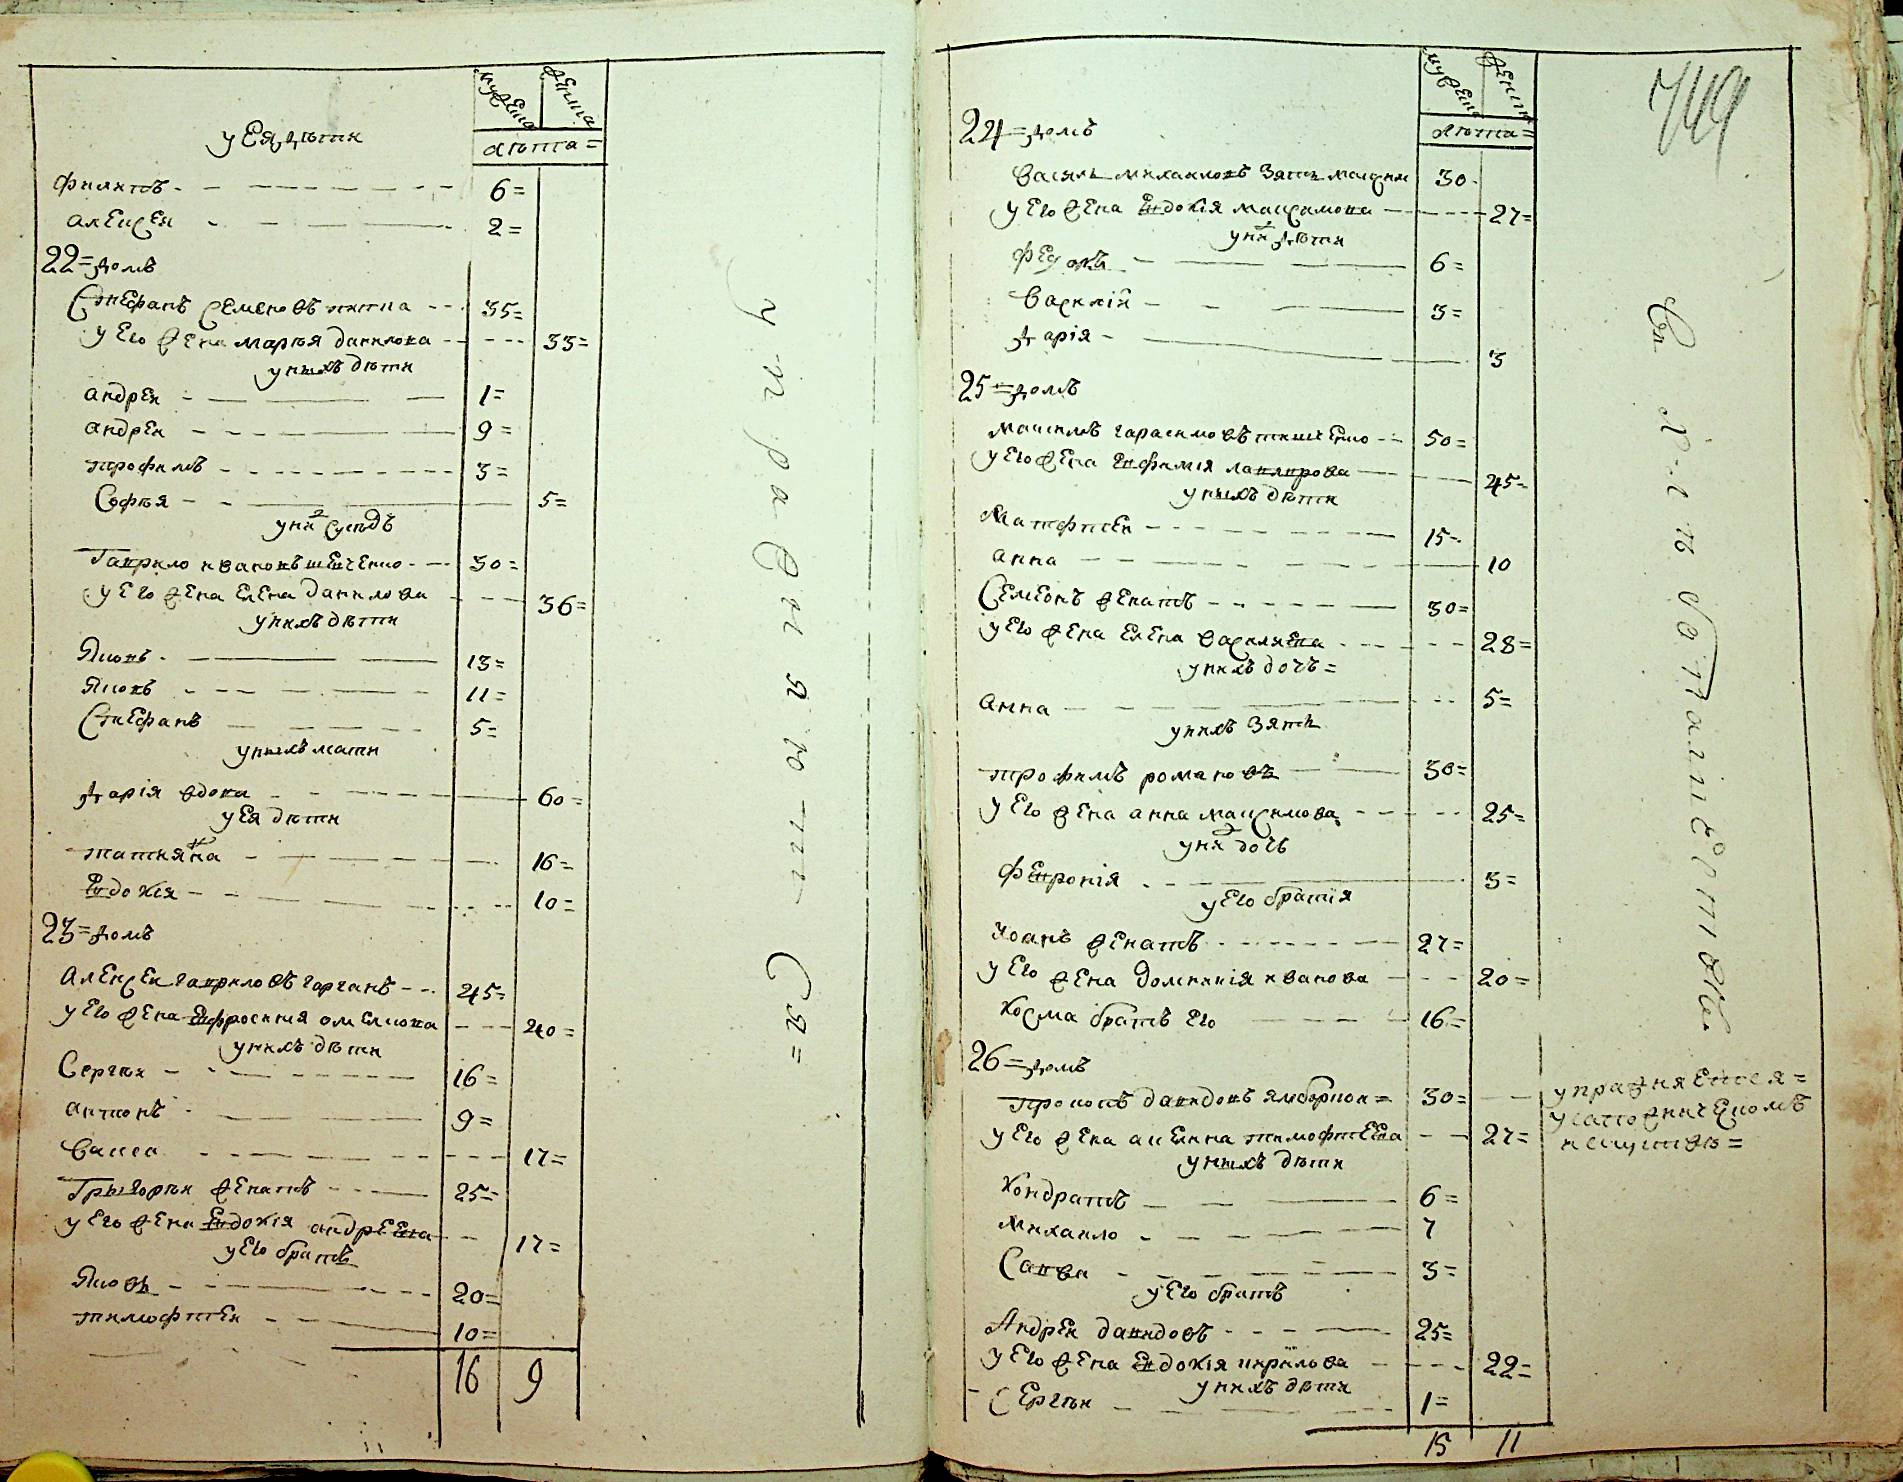 мужска
женска
лѣта=
у Ея дѣти
филипъ 6=
алексей 2=
22=домъ
Стефанъ Семеновъ 35=
у Его жена марья данилова 33=
у нихъ дѣти
андрей 1=
андрей 9=
трофимъ 3=
Софья 5=
у них сусѣдъ
Гаврило ивановъ шевченко 30=
у Его жена Елена данилова 36=
у нихъ дѣти
Яковъ 13=
Яковъ 11=
Стефанъ 5=
у нихъ мати
дарія вдова 60=
у Ея дѣти
татияна 16=
Евдокія 10=
23=домъ
алексей гавриловъ горганъ 45=
у Его жена Ефросиния 40=
у нихъ дѣти
Сергѣй 16=
антонъ 9=
васса 17=
Григорѣй женатъ 25=
у Его жена Евдокія андреева 17=
у Его братъ
Яковъ 20=
тимофтей 10=
16 9
749
24=домъ
василь михаиловъ зять максим 30
у Его жена Евдокія максимова 27=
у них дѣти
федоръ 6=
василій 3=
дарія 3
25=домъ
максимъ гарасимовъ 50=
у Его жена Евфимія 45=
у нихъ дѣти
Матфтей 15=
анна 10
Семенъ женатъ 30=
у Его жена Елена василиева 28=
у нихъ дочъ=
анна 5=
у нихъ зять
трофимъ романовъ 30=
у Его жена анна максимова 25=
у них дочъ
феврония 3=
у Его братия
Иоанъ женатъ 27=
у Его жена домникія иванова 20=
Косма братъ Его 16=
26=домъ
прокопъ давидовъ 30=
у Его жена акелина тимофтеева 27=
у нихъ дѣти
Кондратъ 6=
михаило 7
Савва 3=
у Его братъ
Андрей давидовъ 25=
у Его жена Евдокія кирилова 22=
у нихъ дѣти
Сергѣй 1=
15 11
упражняется=